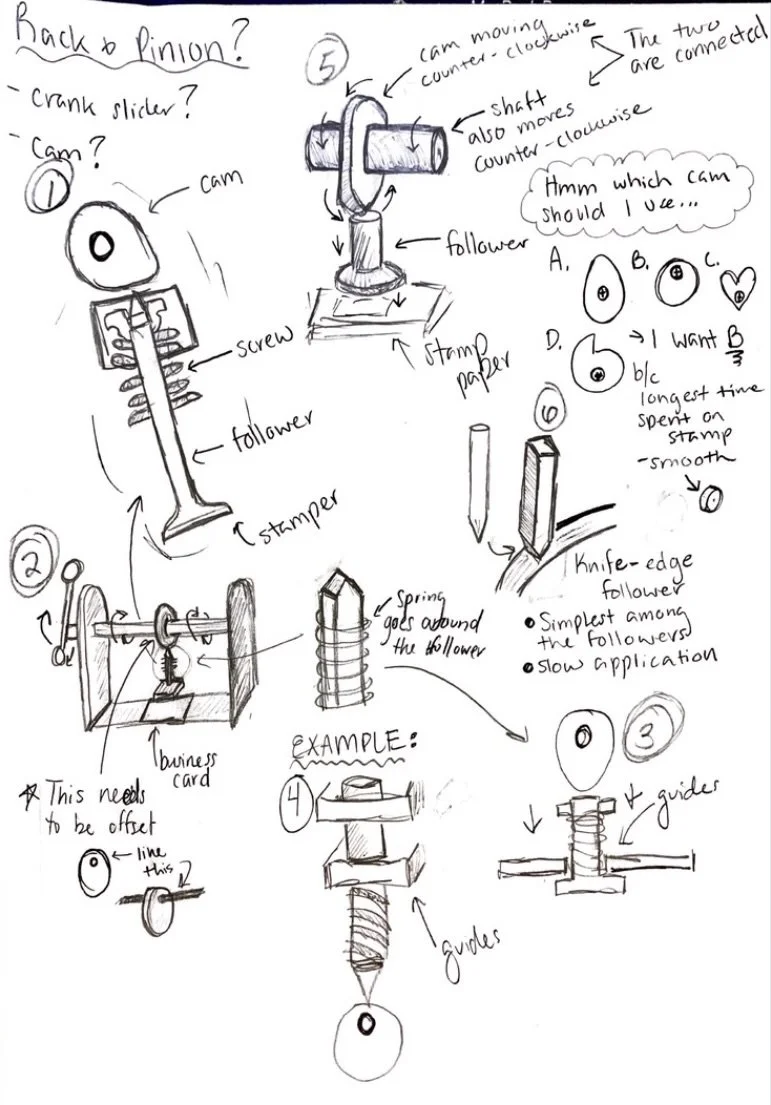 Rack & Pinion?
- crank slider?
- Cam?
1
cam
screw
follower
stamper
5
cam moving
counter-clockwise
The two
are connected
shaft
also moves
counter-clockwise
follower
stamp
paper
Hmm which cam
should I use...
A.
B.
C.
D.
→ I want B
b/c
longest time
spent on
stamp
-smooth
6
Knife-edge
follower
• Simplest among
the followers
• Slow application
2
business
card
This needs
to be offset
like
this
Spring
goes around
the follower
3
guides
EXAMPLE:
4
guides